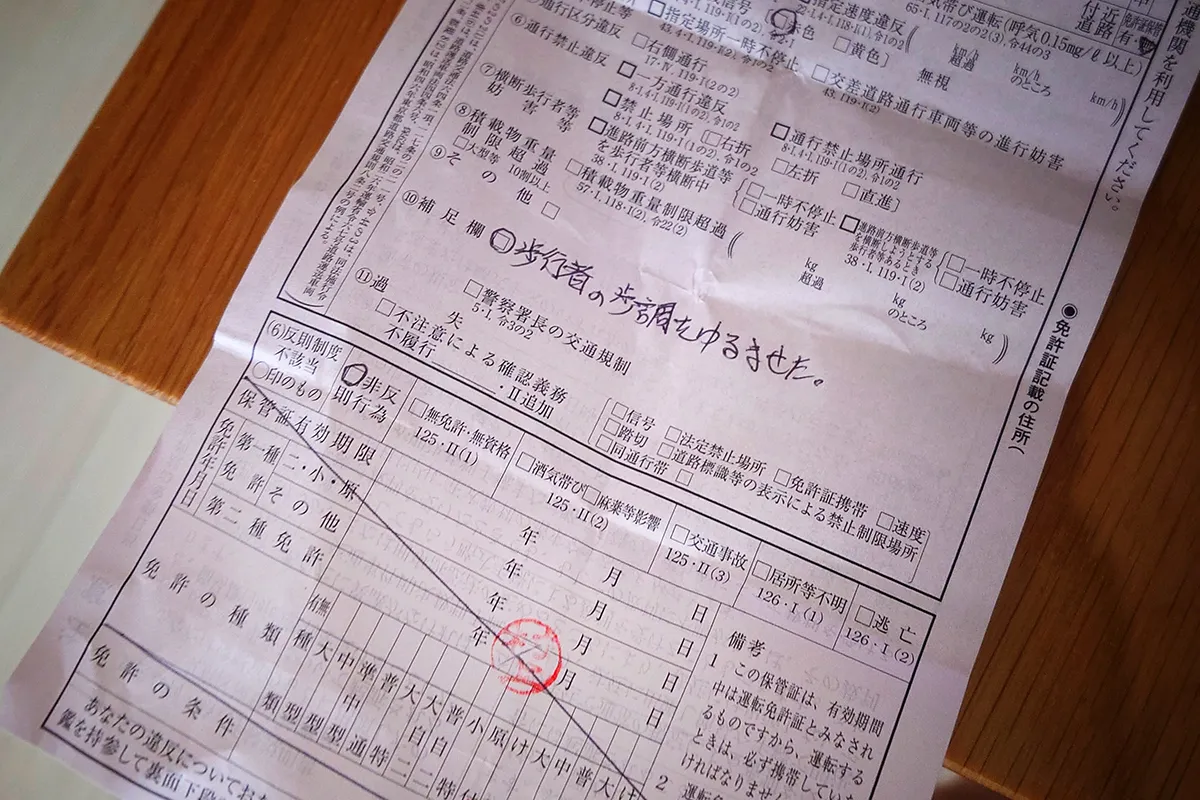 機関を利用してください。
●免許証記載の住所(
付近道路
有
帯び運転(呼気0.15mg/ℓ以上)
65・I, 117の2の2(3), 令44の3
指定速度違反
赤色
□黄色〕
km/h
超過
km/h
のところ
km/h
□指定場所一時不停止
43, 119・I(2)
無視
□交差道路通行車両等の進行妨害
43, 119・I(2)
⑥通行区分違反
□右側通行
17・IV, 119・I(2の2)
通行禁止違反
□一方通行違反
8・I, 4・I, 119・I(1の2), 令1の2
□通行禁止場所通行
8・I, 4・I, 119・I(1の2), 令1の2
□禁止場所
8・I, 4・I, 119・I(1の2), 令1の2
□右折
□左折
□直進〕
⑦横断歩行者等妨害等
□進路前方横断歩道等を歩行者等横断中
38・I, 119・I(2)
□一時不停止
□通行妨害
□進路前方横断歩道等を横断しようとする歩行者等あるとき
38・I, 119・I(2)
□一時不停止
□通行妨害
⑧積載物重量制限超過
□大型等 10割以上
□積載物重量制限超過
57・I, 118・I(2), 令22(2)
kg
超過
kg
のところ
kg
⑨その他 □
⑩補足欄
□歩行者の歩調をゆるませた。
⑪過失
□警察署長の交通規制
5・I, 令3の2
□不注意による確認義務不履行
・II追加
□信号
□踏切
□同通行帯
□法定禁止場所
□道路標識等の表示による禁止制限場所
□免許証携帯
□速度
(6)反則制度不該当
○印のもの
非反則行為
□無免許・無資格
125・II(1)
□酒気帯び□麻薬等影響
125・II(2)
□交通事故
125・II(3)
□居所等不明
126・I(1)
□逃亡
126・I(2)
保管証有効期限
年 月 日
免許年月日
第一種免許
二・小・原
年 月 日
その他
年 月 日
第二種免許
年 月 日
免許の種類
有無
種類
大型
中型
準中型
普通
大特
大自二
普自二
小特
原付
け
大
中
普
大
け
免許の条件
備考
1 この保管証は、有効期間
中は運転免許証とみなされ
るものですから、運転する
ときは、必ず携帯していな
ければなりません
2
あなたの違反についてお
を持参して裏面下段の